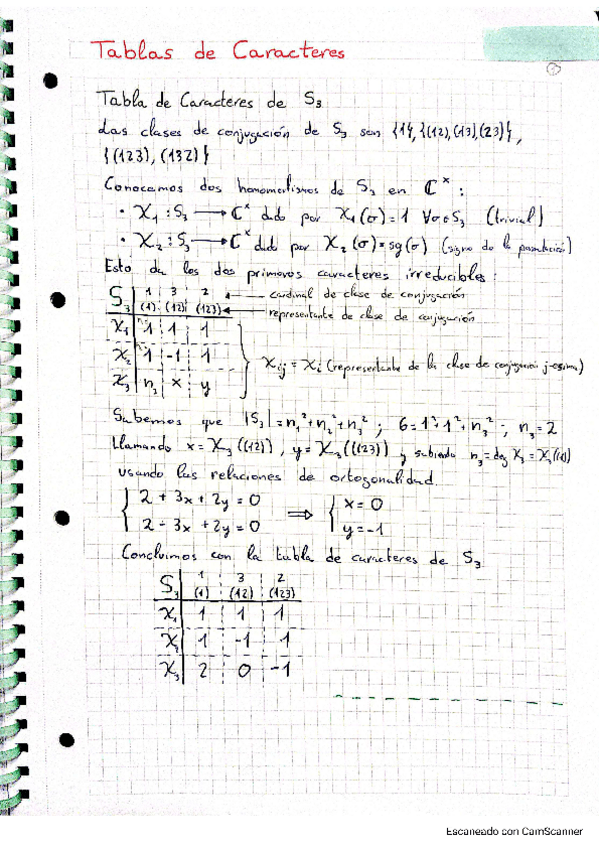 Tablas de Caracteres
Tabla de Caracteres de S₃
Las clases de conjugación de S₃ son {1}, {(12),(13),(23)},
{(123), (132)}
Conocemos dos homomorfismos de S₃ en ℂˣ :
• χ₁ : S₃ ⟶ ℂˣ dado por χ₁(σ) = 1 ∀σ∈S₃ (trivial)
• χ₂ : S₃ ⟶ ℂˣ dado por χ₂(σ) = sg(σ) (signo de la permutación)
Esto da los dos primeros caracteres irreducibles :
S₃ 1 3 2 ← cardinal de clase de conjugación
(1) (12) (123) ← representante de clase de conjugación
χ₁ 1 1 1
χ₂ 1 -1 1
χᵢⱼ = χᵢ (representante de la clase de conjugación j-ésima)
χ₃ n₃ x y
Sabemos que |S₃| = n₁² + n₂² + n₃² ; 6 = 1² + 1² + n₃² ; n₃ = 2
Llamando x = χ₃((12)), y = χ₃((123)) y sabiendo n₃ = deg χ₃ = χ₃((1))
usando las relaciones de ortogonalidad.
{ 2 + 3x + 2y = 0 ⟹ { x = 0
2 - 3x + 2y = 0 y = -1
Concluimos con la tabla de caracteres de S₃
S₃ 1 3 2
(1) (12) (123)
χ₁ 1 1 1
χ₂ 1 -1 1
χ₃ 2 0 -1
Escaneado con CamScanner